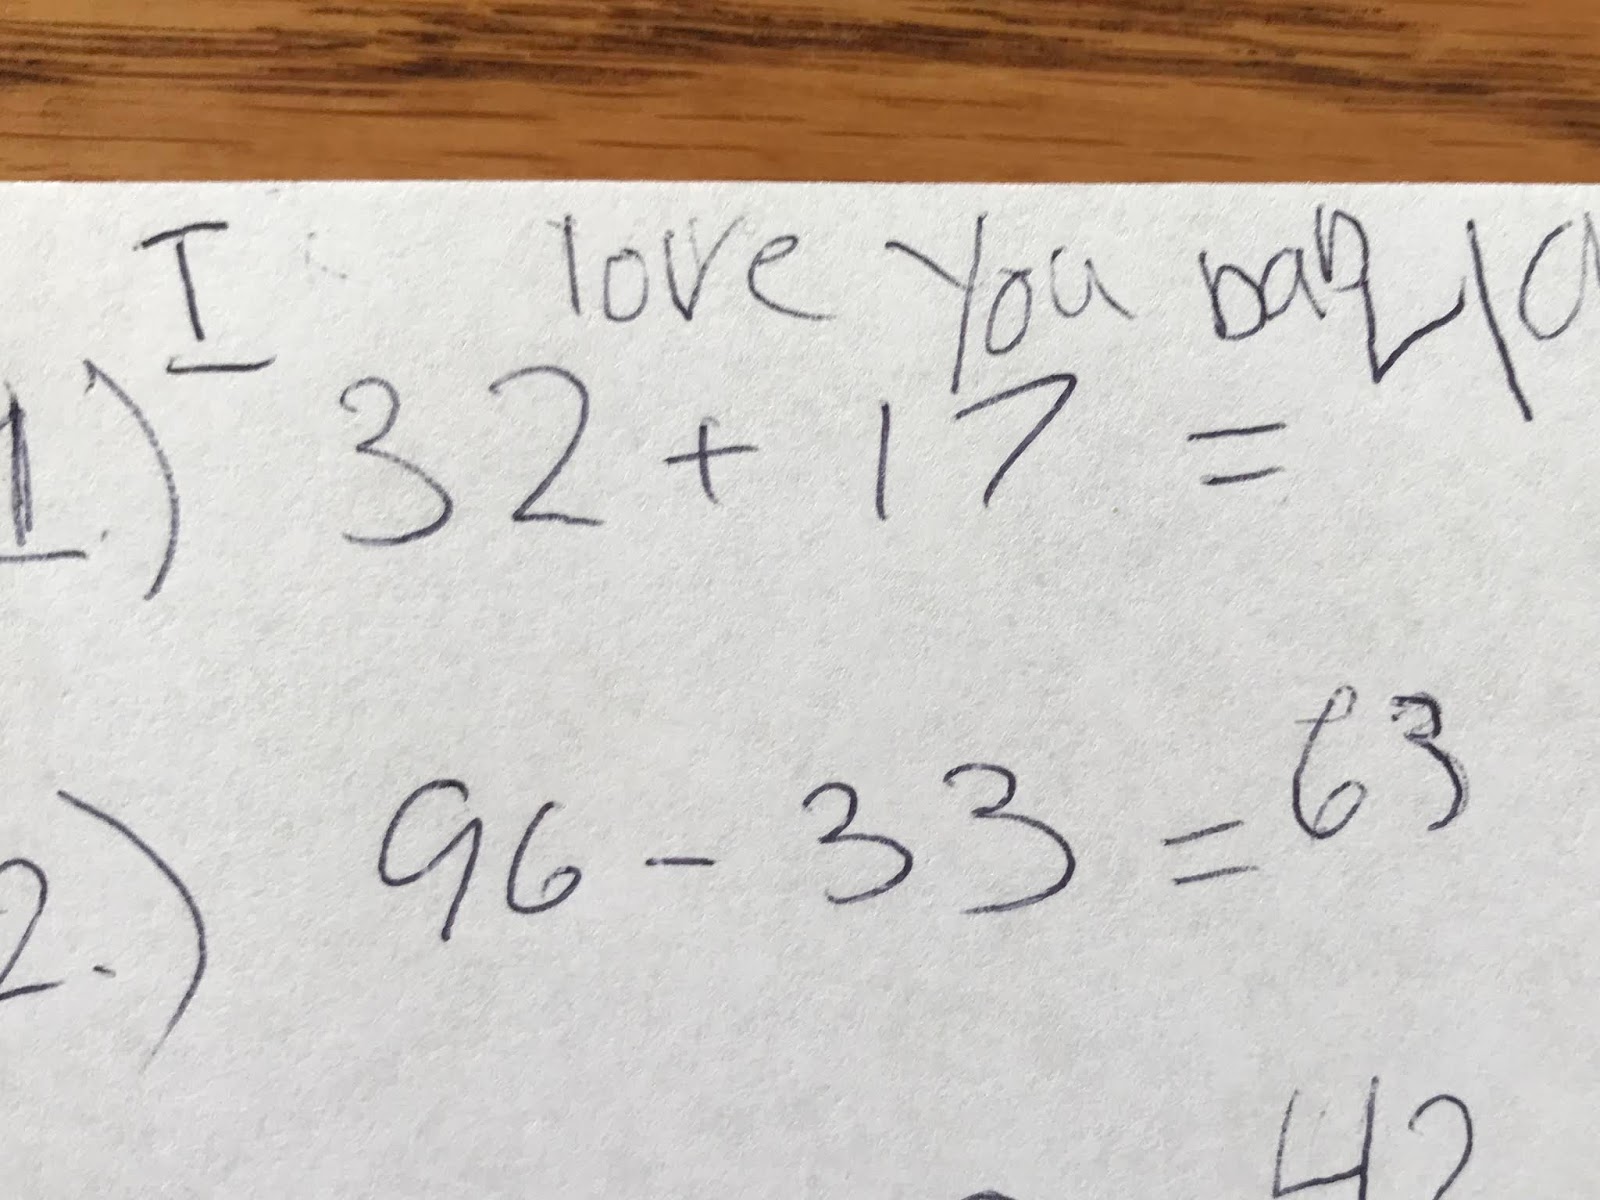 I love you
1.) 32 + 17 =
2.) 96 - 33 = 63
42